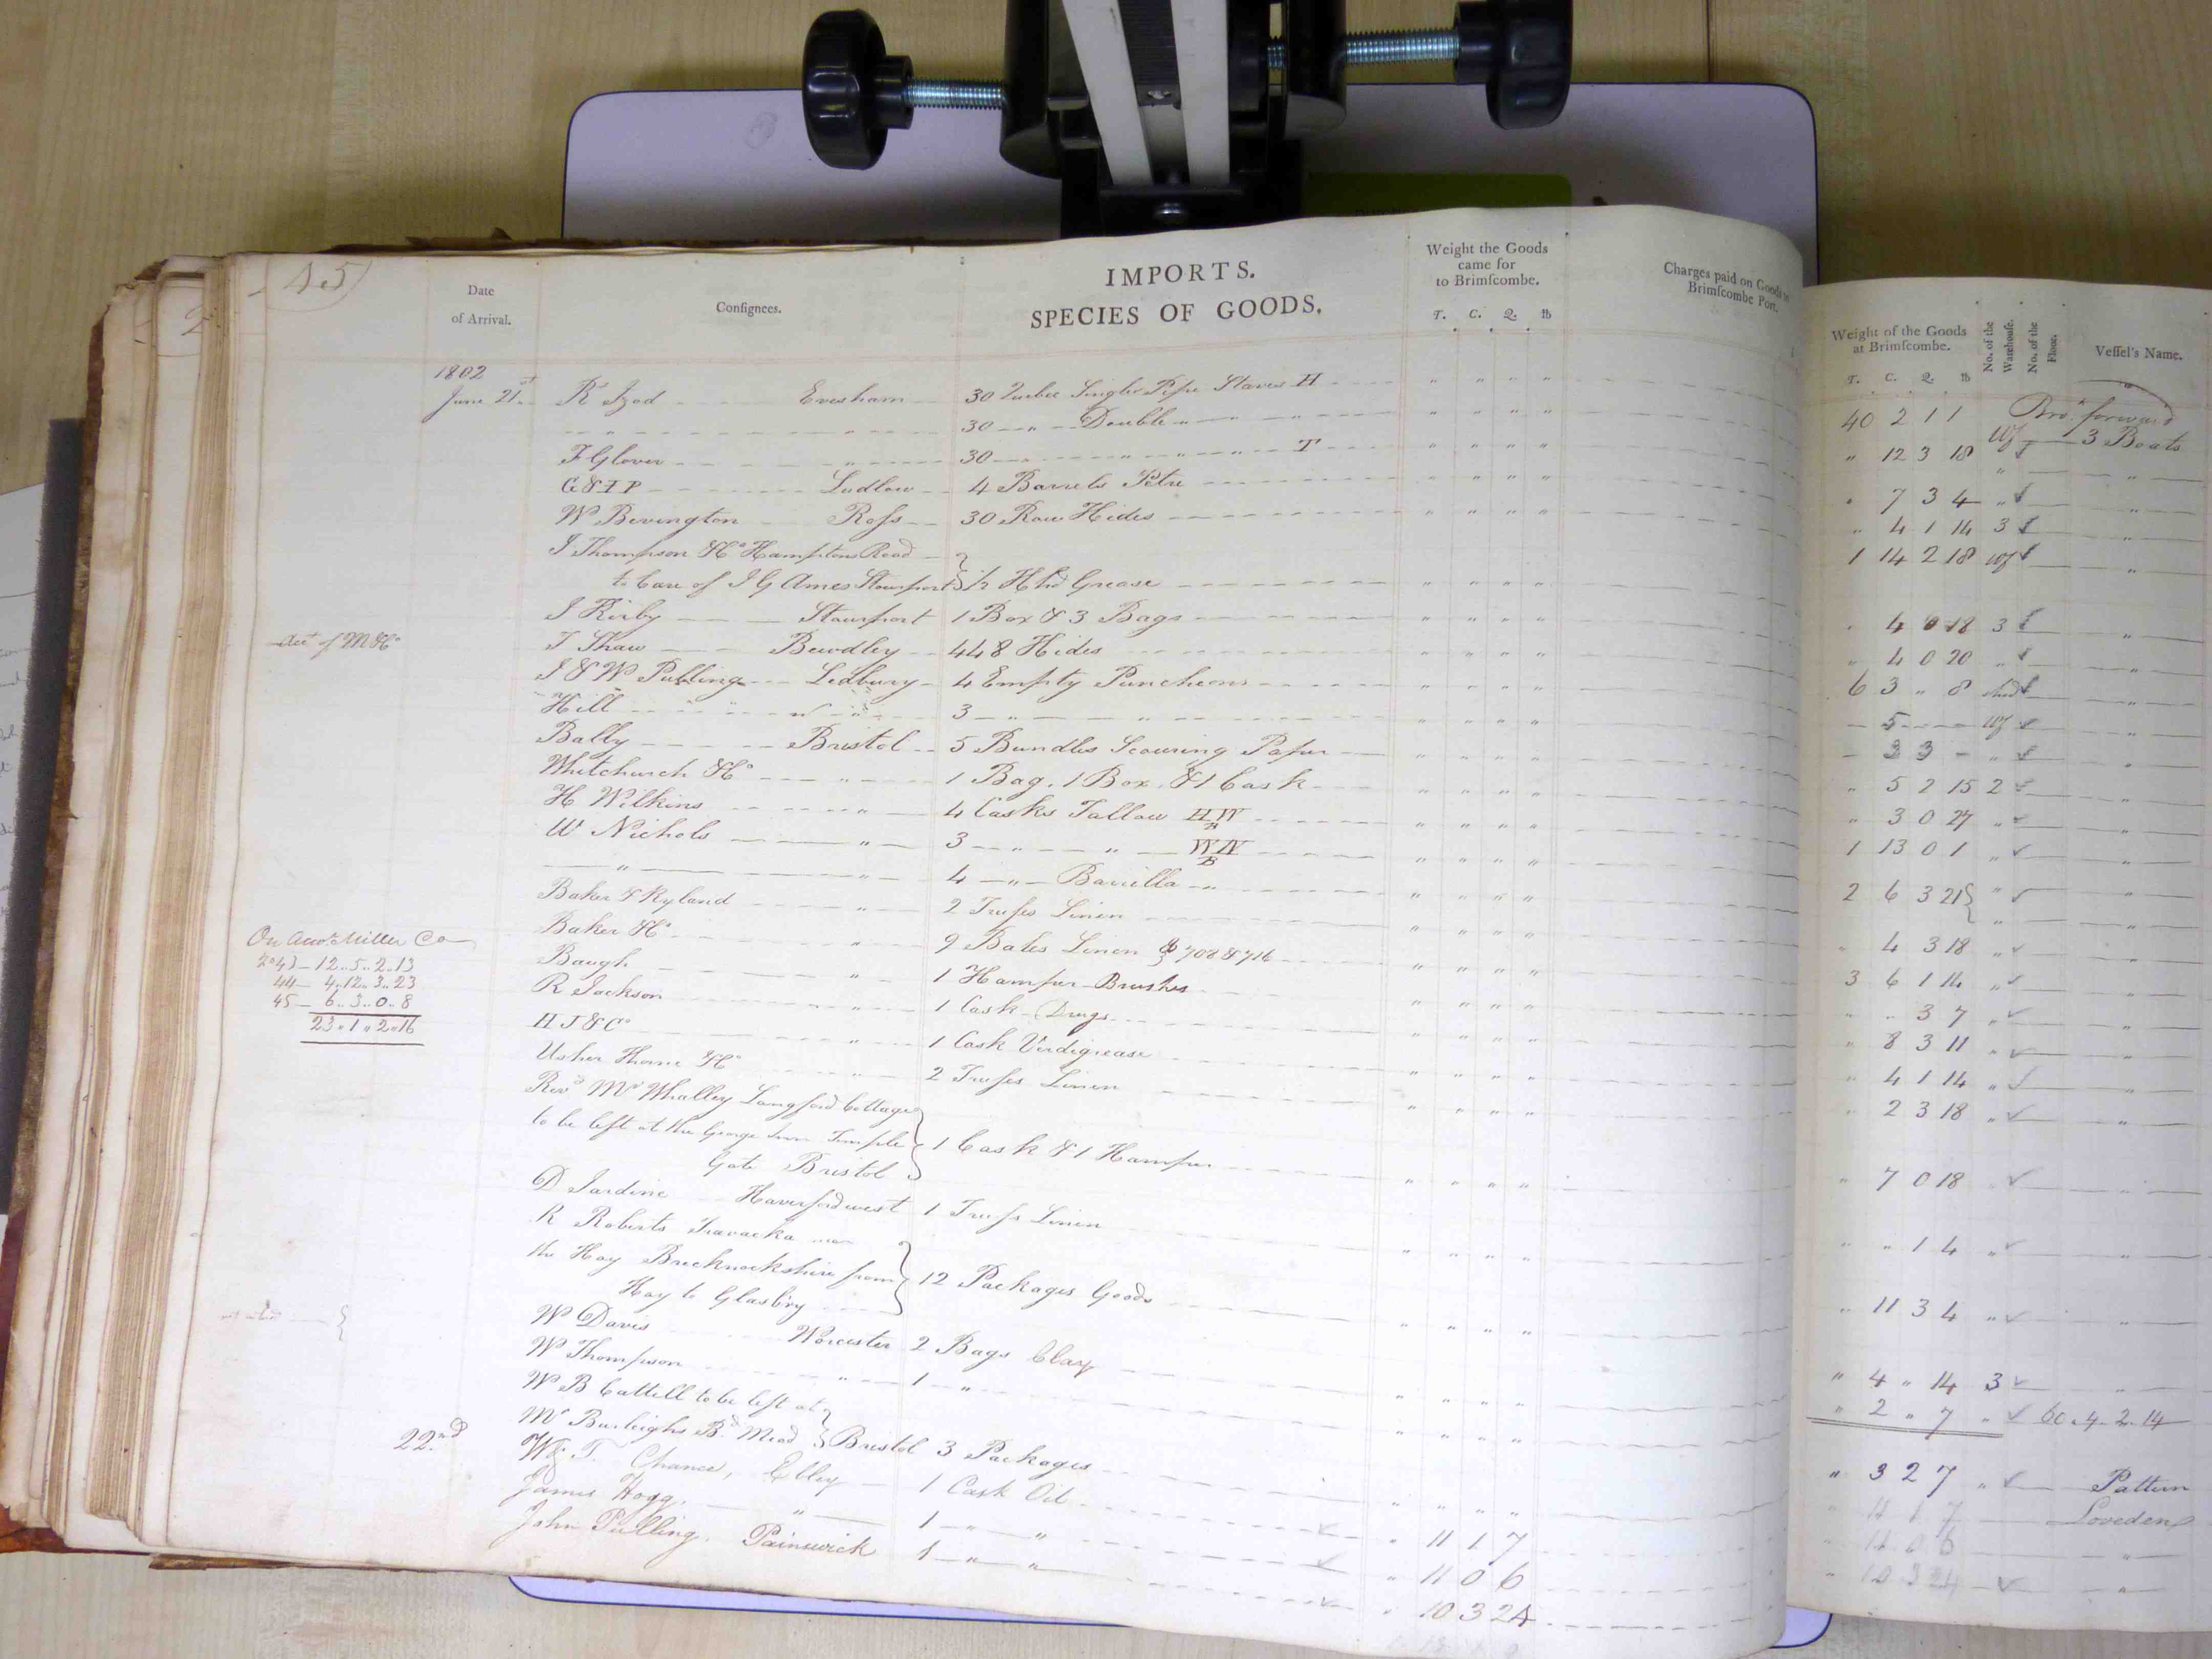 45
2
IMPORTS.
Date of Arrival.
Consignees.
SPECIES OF GOODS.
Weight the Goods came for to Brimscombe.
T. C. Q. lb
Charges paid on Goods to Brimscombe Port.
Weight of the Goods at Brimscombe.
T. C. Q. lb
No. of the Warehouse.
No. of the Floor.
Vessel's Name.
1802
40 2 11 Bro.t forward
June 21st R Izod Evesham 30 Quebec Single Pipe Staves H " " " " " 12 3 18 Wf 3 Boats
" " 30 " Double " " " " " " " "
F Glover " 30 " " " T " " " " " 7 3 4 " "
G & I P Ludlow 4 Barrels Petre " " " " " 4 1 14 3 "
W Bevington Ross 30 Raw Hides " " " " 1 14 2 18 Wf "
J Thompson & Co Hamptons Road
to Care of J G Ames Stourport } 1/2 Hhd Grease " " " " " 4 0 18 3 "
J Kirby Stourport 1 Box & 3 Bags " " " " " 4 0 20 " "
Acct of M & Co T Shaw Bewdley 448 Hides " " " " 6 3 " 8 shed "
J & W Pulling Ledbury 4 Empty Puncheons " " " " 5 Wf "
Hill " 3 " " " " " " 3 3 " "
Bally Bristol 5 Bundles Scouring Paper " " " " " 5 2 15 2 "
Whitchurch & Co " 1 Bag, 1 Box, & 1 Cask " " " " " 3 0 27 " "
H Wilkins " 4 Casks Tallow HW B " " " " 1 13 0 1 " "
W Nichols " 3 " " WN B " " " " 2 6 3 21 } " "
" " 4 " Barrilla " " " " " " "
Baker & Ryland " 2 Trusses Linen " " " " " 4 3 18 " "
Baker & Co " 9 Bales Linen 708 & 716 " " " " 3 6 1 14 " "
On Acct. Miller Co
43 12.. 5.. 2.. 13
44 4.. 12.. 3.. 23
45 6.. 3.. 0.. 8
23 " 1 " 2 " 16
Baugh " 1 Hamper Brushes " " " " " " 3 7 " "
R Jackson " 1 Cask Drugs " " " " " 8 3 11 " "
H J & Co " 1 Cask Verdigrease " " " " " 4 1 14 " "
Usher Thorne & Co " 2 Trusses Linen " " " " " 2 3 18 " "
Revd Mr Whalley Langford Cottage
to be left at the George Inn Temple
Gate Bristol } 1 Cask & 1 Hamper " " " " " 7 0 18 " "
D Jardine Haverfordwest 1 Truss Linen " " " " " " 1 4 " "
R Roberts Travacka near
the Hay Brecknockshire from
Hay to Glasbry } 12 Packages Goods " " " " " 11 3 4 " "
W Davis Worcester 2 Bags Clay " " " " " 4 " 14 3 "
W Thompson " 1 " " " " " " 2 " 7 " 60 . 4 . 2 . 14
W B Cattell to be left at
Mr Burleighs Bd Mead } Bristol 3 Packages " " " " " 3 2 7 " Pattern
22nd W & T. Chance, Elley 1 Cask Oil " 11 1 7 " 11 1 7 Loveden
James Hogg, " 1 " " " 11 0 6 " 11 0 6 "
John Pulling, Painswick 1 " " " 10 3 24 " 10 3 24 "